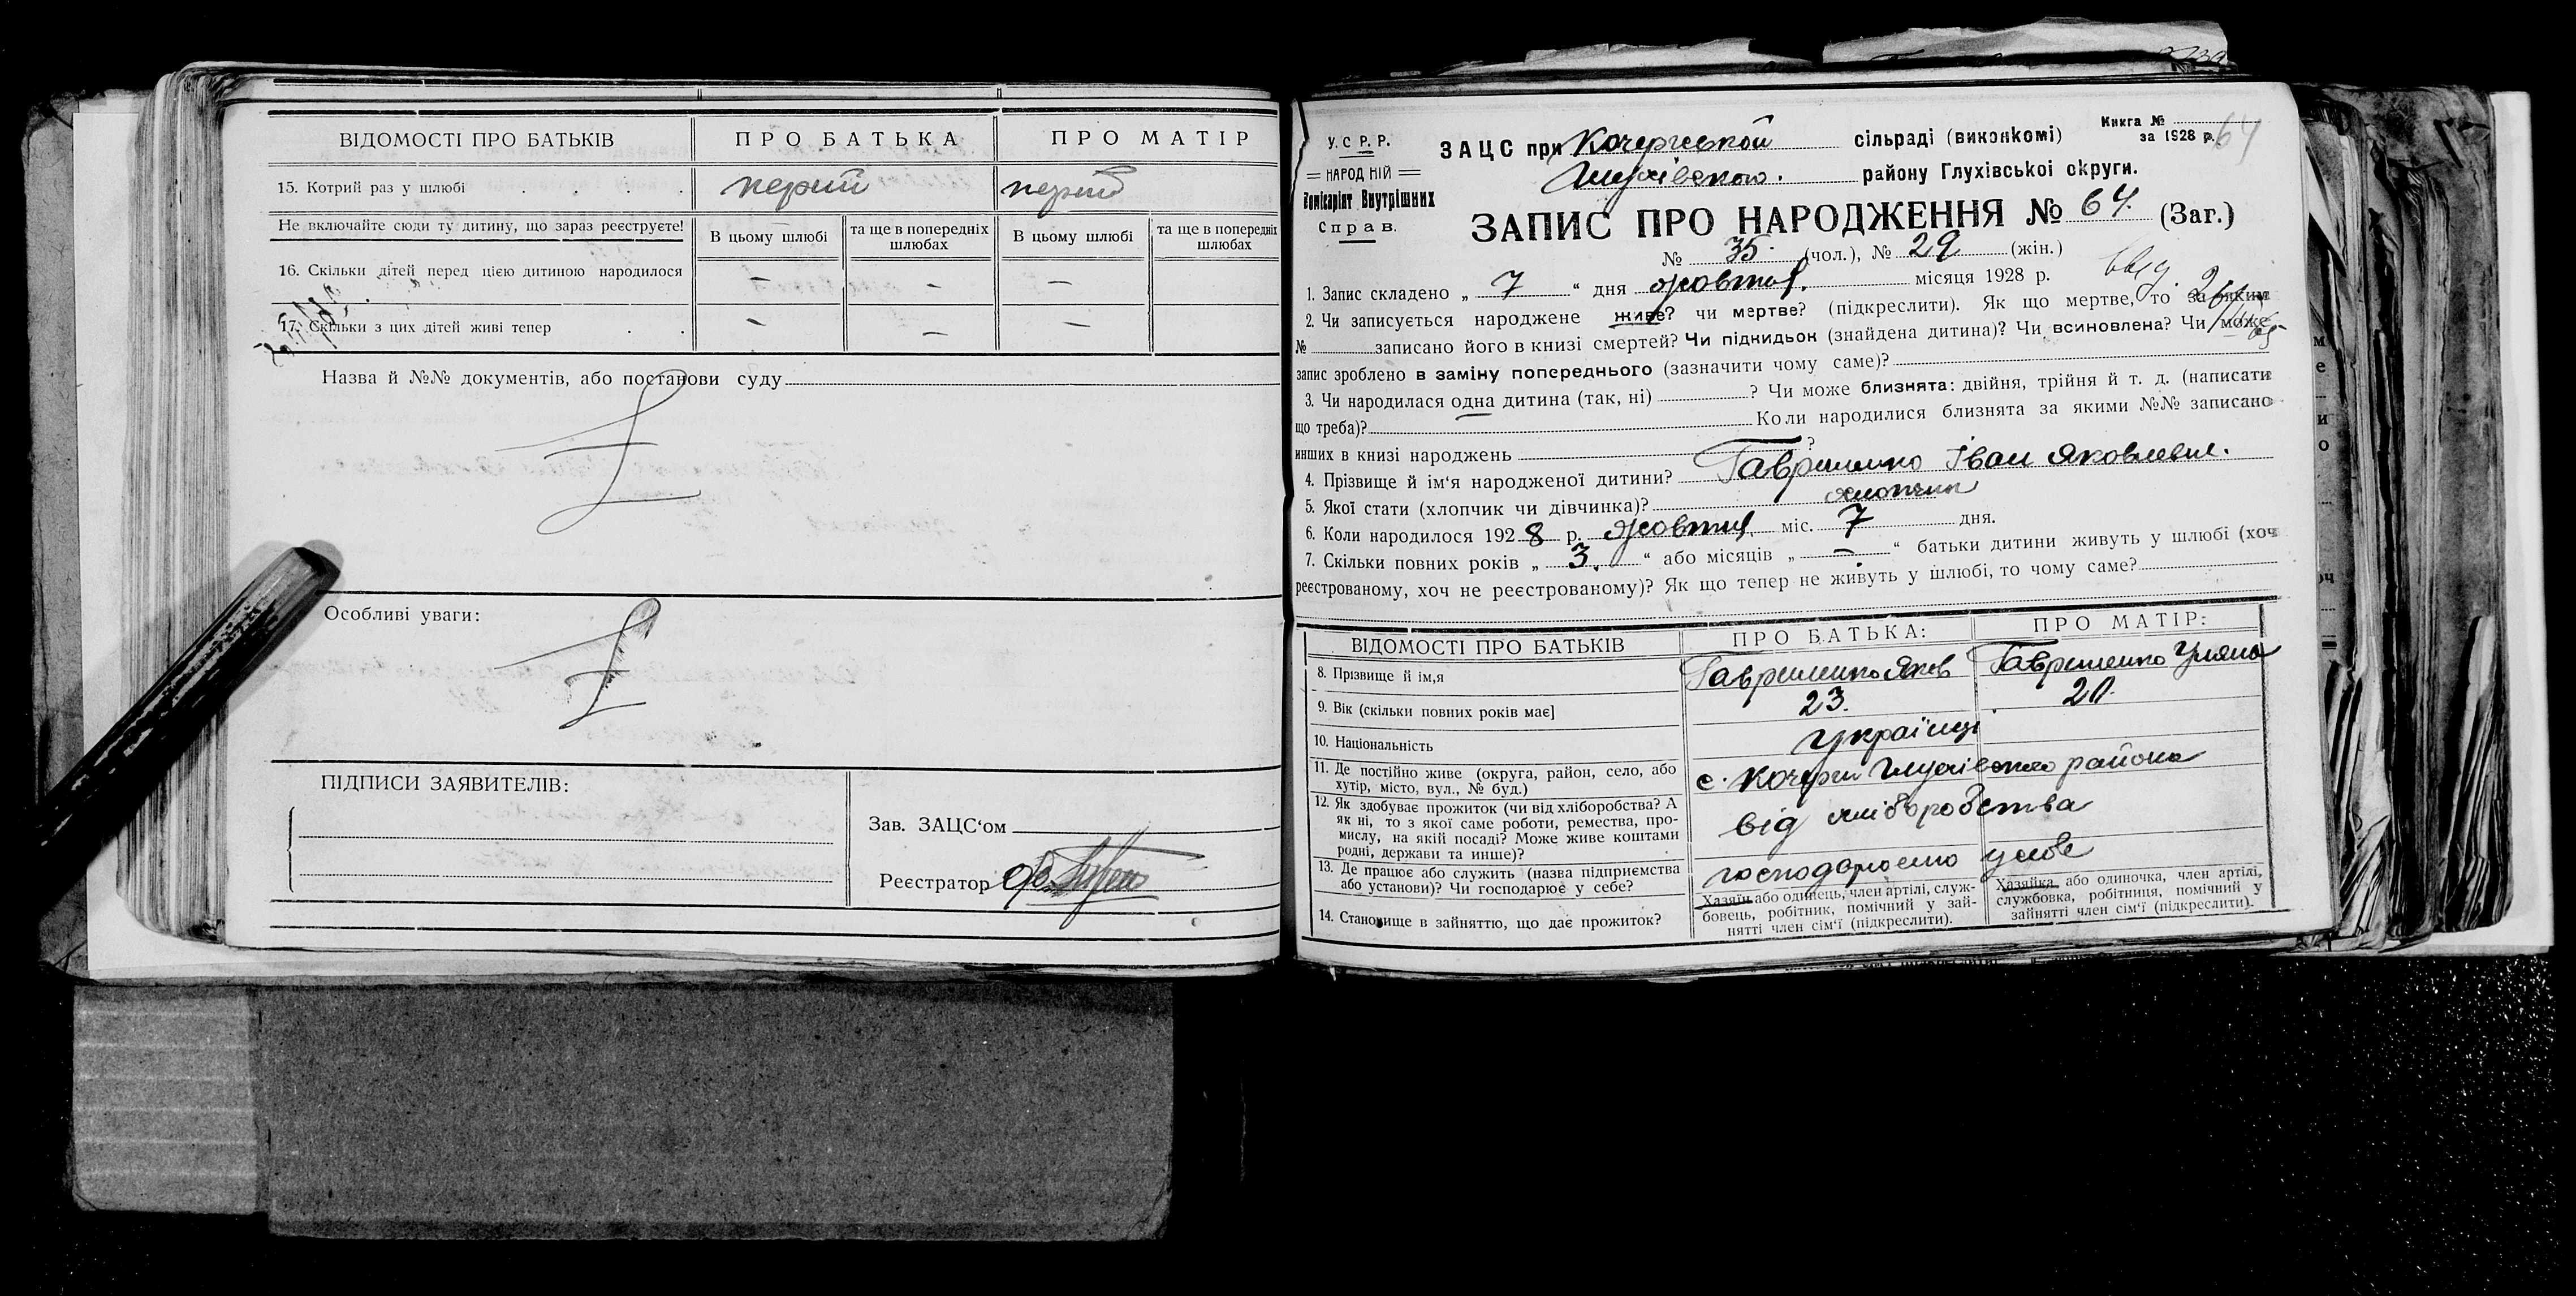 ВІДОМОСТІ ПРО БАТЬКІВ ПРО БАТЬКА ПРО МАТІР
15. Котрий раз у шлюбі . . . перший перший
Не включайте сюди ту дитину, що зараз реєструєте! В цьому шлюбі та ще в попередніх шлюбах В цьому шлюбі та ще в попередніх шлюбах
16. Скільки дітей перед цією дитиною народилося – – –
17. Скільки з цих дітей живі тепер . . – – –
Назва й №№ документів, або постанови суду
Особливі уваги:
ПІДПИСИ ЗАЯВИТЕЛІВ:
Зав. ЗАЦС‘ом
Реєстратор
У.С.Р.Р.
НАРОДНІЙ
Комісаріят Внутрішних
Справ.
Книга №
за 1928 р. 64
ЗАЦС при Кочергській сільраді (виконкомі)
Глухівського. району Глухівської округи.
ЗАПИС ПРО НАРОДЖЕННЯ № 64. (Заг.)
№ 35. (чол.), № 29 (жін.)
1. Запис складено „ 7 “ дня жовтня. місяця 1928 р.
2. Чи записується народжене живе? чи мертве? (підкреслити). Як що мертве, то за яким
№ записано його в книзі смертей? Чи підкидьок (знайдена дитина)? Чи всиновлена? Чи може
запис зроблено в заміну попереднього (зазначити чому саме)?
3. Чи народилася одна дитина (так, ні) ? Чи може близнята: двійня, трійня й т. д. (написати
що треба)? Коли народилися близнята за якими №№ записано
инших в книзі народжень ?
4. Прізвище й ім‘я народженої дитини? Гавриленко Іван Яковлевич.
5. Якої стати (хлопчик чи дівчинка)? хлопчик
6. Коли народилося 192 8 р. жовтня міс. 7 дня.
7. Скільки повних років „ 3. “ або місяців „ – “ батьки дитини живуть у шлюбі (хоч
реєстрованому, хоч не реєстрованому)? Як що тепер не живуть у шлюбі, то чому саме?
ВІДОМОСТІ ПРО БАТЬКІВ ПРО БАТЬКА: ПРО МАТІР:
8. Прізвище й ім,я Гавриленко Яков Гавриленко Уляна
9. Вік (скільки повних років має] 23. 20.
10. Національність Українці
11. Де постійно живе (округа, район, село, або
хутір, місто, вул., № буд.) с. Кочерги Глухівського района
12. Як здобуває прожиток (чи від хліборобства? А
як ні, то з якої саме роботи, ремества, про-
мислу, на якій посаді? Може живе коштами
родні, держави та инше)? від хліборобства
13. Де працює або служить (назва підприємства
або установи)? Чи господарює у себе? господарюємо у себе
14. Становище в зайняттю, що дає прожиток?
Хазяїн або одинець, член артілі, служ-
бовець, робітник, помічний у зай-
нятті член сім‘ї (підкреслити).
Хазяйка, або одиночка, член артілі,
службовка, робітниця, помічний у
зайнятті член сім‘ї (підкреслити).